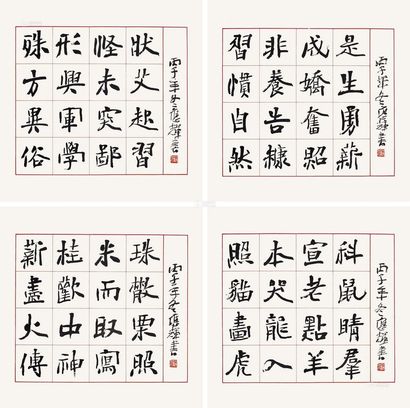 殊形怪狀
方興未艾
異軍突起
俗學鄙習
丙子年冬書
習非成是
慣養嬌生
自告奮勇
然糠炤薪
丙子年冬書
薪桂米珠
盡歡而散
火中取栗
傳神寫照
丙子年冬書
照本宣科
貓哭老鼠
畫龍點睛
虎入羊羣
丙子年冬書